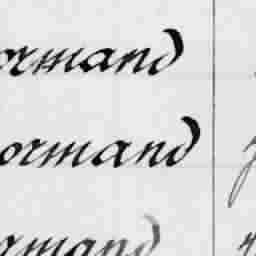 ormand
ormand
rmand